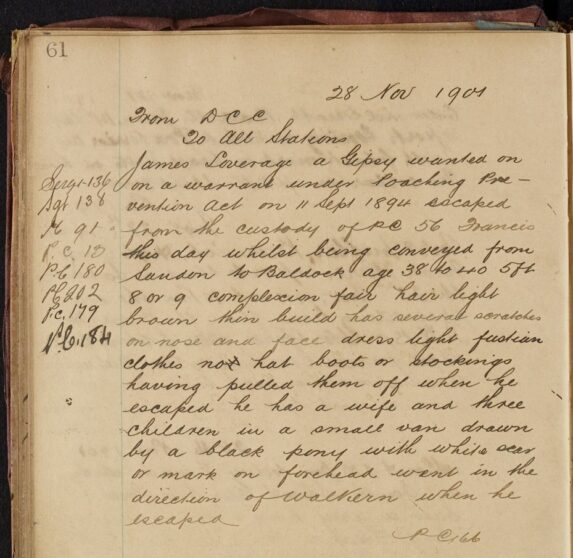 61
28 Nov 1901
From D C C
To All Stations
James Loverage a Gipsy wanted on
on a warrant under Poaching Pre-
vention Act on 11 Sept 1894 escaped
from the custody of PC 56 Francis
this day whilst being conveyed from
Sandon to Baldock age 38 to 40 5ft
8 or 9 complexion fair hair light
brown thin build has several scratches
on nose and face dress light fustian
clothes no hat boots or stockings
having pulled them off when he
escaped he has a wife and three
children in a small van drawn
by a black pony with white scar
or mark on forehead went in the
direction of Walkern when he
escaped
PC 166
Sergt 136
Sgt 138
91
P.C. 13
P.C 180
PC 202
P.C. 179
P.C. 184